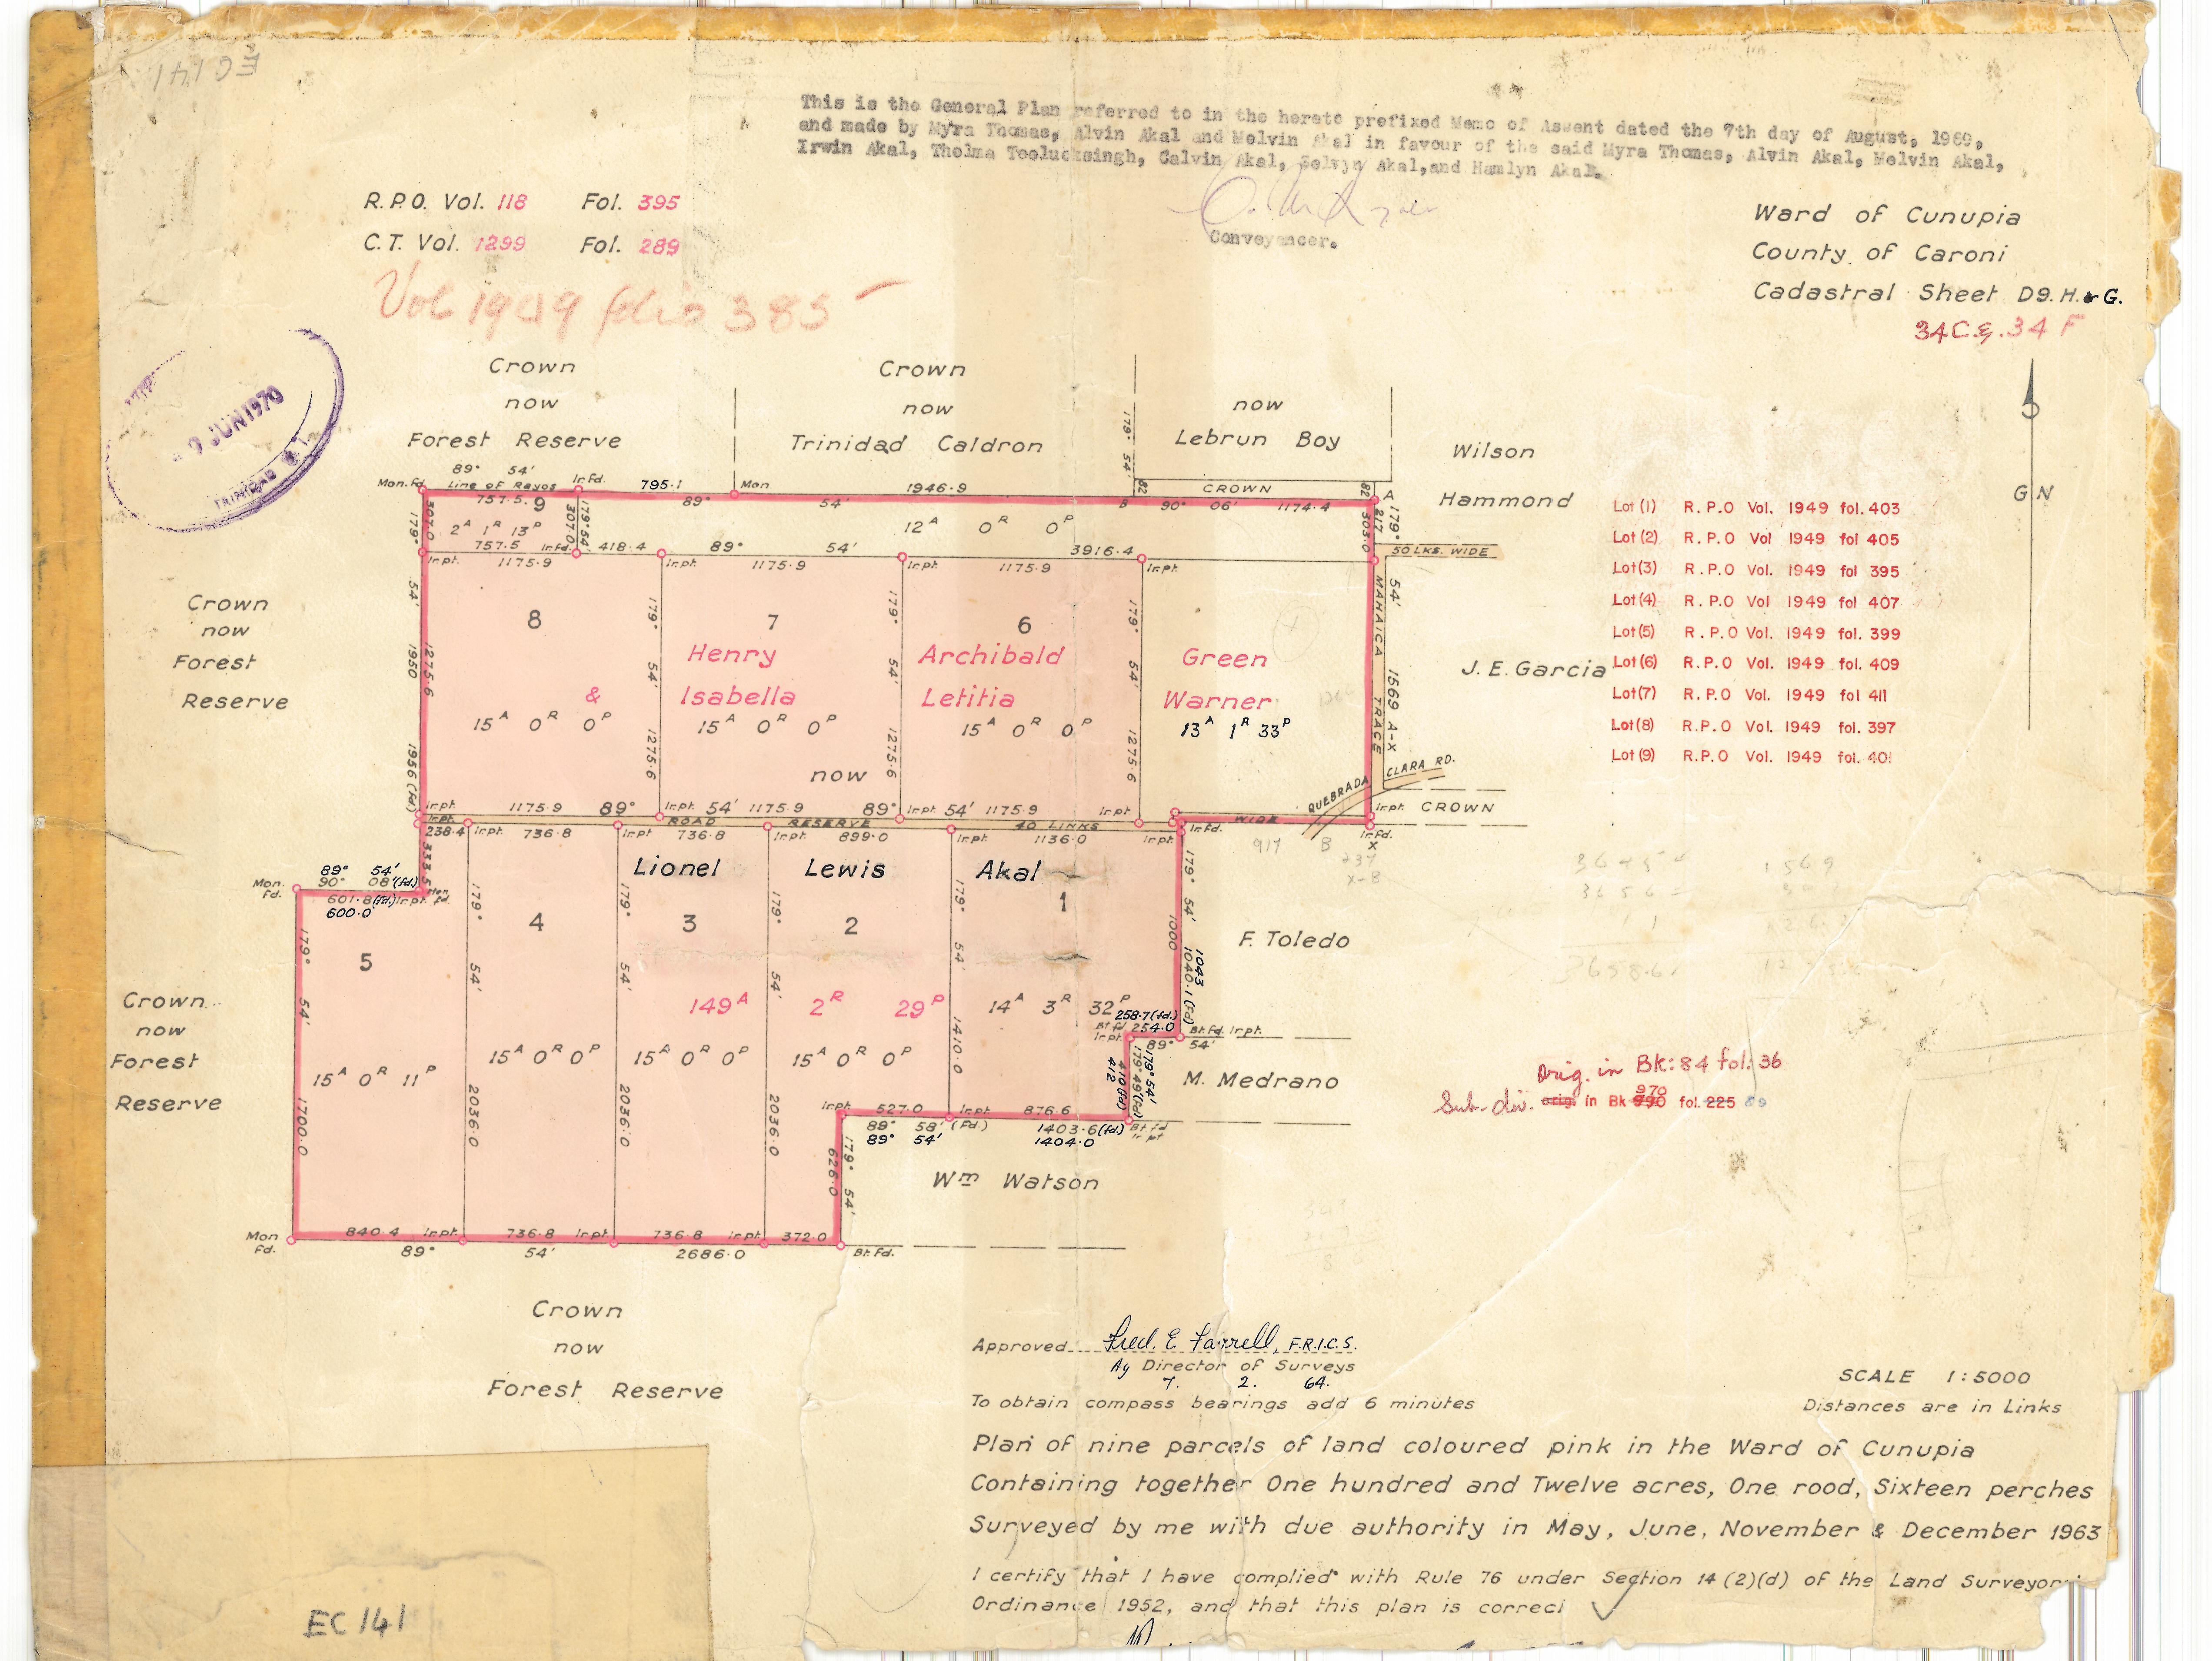 EC 141
This is the General Plan referred to in the hereto prefixed Memo of Assent dated the 7th day of August, 1969,
and made by Myra Thomas, Alvin Akal and Melvin Akal in favour of the said Myra Thomas, Alvin Akal, Melvin Akal,
Irwin Akal, Thelma Teelucksingh, Calvin Akal, Selvyn Akal, and Hamlyn Akal.
Conveyancer.
R.P.O. Vol. 118 Fol. 395
C.T. Vol. 1299 Fol. 289
Vol 1949 folio 385
Ward of Cunupia
County of Caroni
Cadastral Sheet D9. H. & G.
34C &. 34 F
9 JUN 1970
TRINIDAD
Crown
now
Forest Reserve
Crown
now
Trinidad Caldron
now
Lebrun Boy
Wilson
Hammond
G N
179° 54'
89° 54'
Mon. Fd. Line of Rayos Ir. Fd. 795.1 Mon 1946.9 CROWN
82 82 A
757.5 9 89° 54' B 90° 06' 1174.4
2A 1R 13P
307.0 179° 54' 307.0
12A 0R 0P
217 303.0 179°
757.5 Ir. Fd. 418.4 89° 54' 3916.4
50 LKS. WIDE
Ir. pt. 1175.9 Ir. pt. 1175.9 Ir. pt. 1175.9 Ir. pt.
179° 54' 1950 1956 (fd)
1275.6
8
7
6
179° 54' 1275.6
179° 54' 1275.6
179° 54' 1275.6
Henry Archibald Green
& Isabella Letitia Warner
15A 0R 0P
15A 0R 0P
15A 0R 0P
13A 1R 33P
now
MAHAICA TRACE
54' 1569 A-X
J. E. Garcia
Crown
now
Forest
Reserve
QUEBRADA
CLARA RD.
Ir. pt. CROWN
Ir. pt. 1175.9 89° Ir. pt. 54' 1175.9 89° Ir. pt. 54' 1175.9 Ir. pt.
Ir. pt. ROAD RESERVE 40 LINKS WIDE
Ir. Fd. Ir. Fd.
X
238.4 Ir. pt. 736.8 Ir. pt. 736.8 Ir. pt. 899.0 Ir. pt. 1136.0 Ir. pt.
917 B
237
X-B
333.5
Lionel Lewis Akal
89° 54'
90° 08' (fd)
Mon. Fd.
601.8 (fd.) Ir. pt.
600.0
5
4
3
2
1
179° 54' 1700.0
179° 54' 2036.0
179° 54' 2036.0
179° 54' 2036.0
179° 54' 1410.0
179° 54' 1000
1043
1040.1 (Fd)
F. Toledo
149A 2R 29P
14A 3R 32P
258.7 (fd.)
Bt fd 254.0 Bt. Fd. Ir. pt.
Ir. pt. 89° 54'
15A 0R 11P
15A 0R 0P
15A 0R 0P
15A 0R 0P
412 410 (fd)
179° 54'
179° 49' (fd)
M. Medrano
Ir. pt. 527.0 Ir. pt. 876.6
89° 58' (Fd.) 1403.6 (fd.) Bt fd
89° 54' 1404.0 Ir pt
179° 54' 626.0
Wm Watson
Crown
now
Forest
Reserve
Mon Fd. 840.4 Ir. pt. 736.8 Ir. pt. 736.8 Ir. pt. 372.0
89° 54' 2686.0 Bt. Fd.
Crown
now
Forest Reserve
Lot (1) R.P.O Vol. 1949 fol. 403
Lot (2) R.P.O Vol 1949 fol 405
Lot (3) R.P.O Vol. 1949 fol 395
Lot (4) R.P.O Vol 1949 fol 407
Lot (5) R.P.O Vol. 1949 fol. 399
Lot (6) R.P.O Vol. 1949 fol. 409
Lot (7) R.P.O Vol. 1949 fol 411
Lot (8) R.P.O Vol. 1949 fol. 397
Lot (9) R.P.O Vol. 1949 fol. 401
Orig. in Bk: 84 fol: 36
970
Sub-div. orig. in Bk 990 fol. 225 89
Approved Fred. E Farrell, F.R.I.C.S.
Ag Director of Surveys
7. 2. 64.
To obtain compass bearings add 6 minutes
SCALE 1:5000
Distances are in Links
Plan of nine parcels of land coloured pink in the Ward of Cunupia
Containing together One hundred and Twelve acres, One rood, Sixteen perches
Surveyed by me with due authority in May, June, November & December 1963
I certify that I have complied with Rule 76 under Section 14 (2)(d) of the Land Surveyor
Ordinance 1952, and that this plan is correct
EC 141